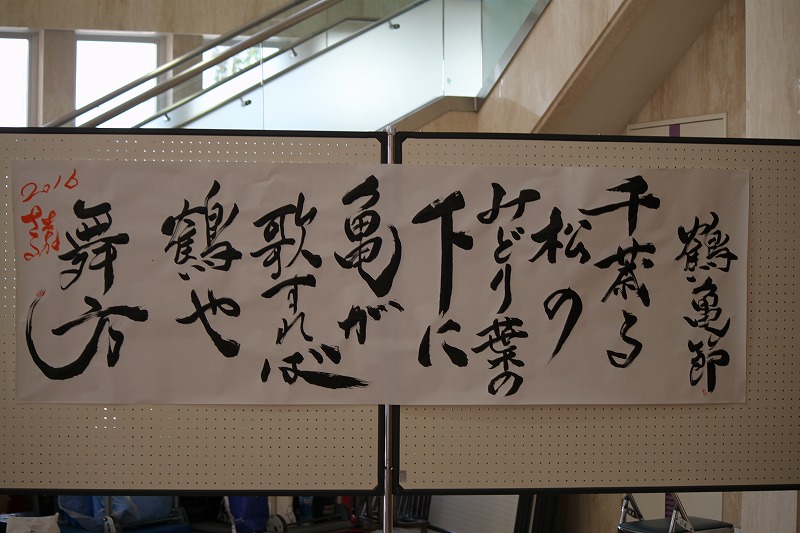 鶴亀節
千歳る
松の
みどり葉の
下に
亀が
歌すれば
鶴や
舞方
2016